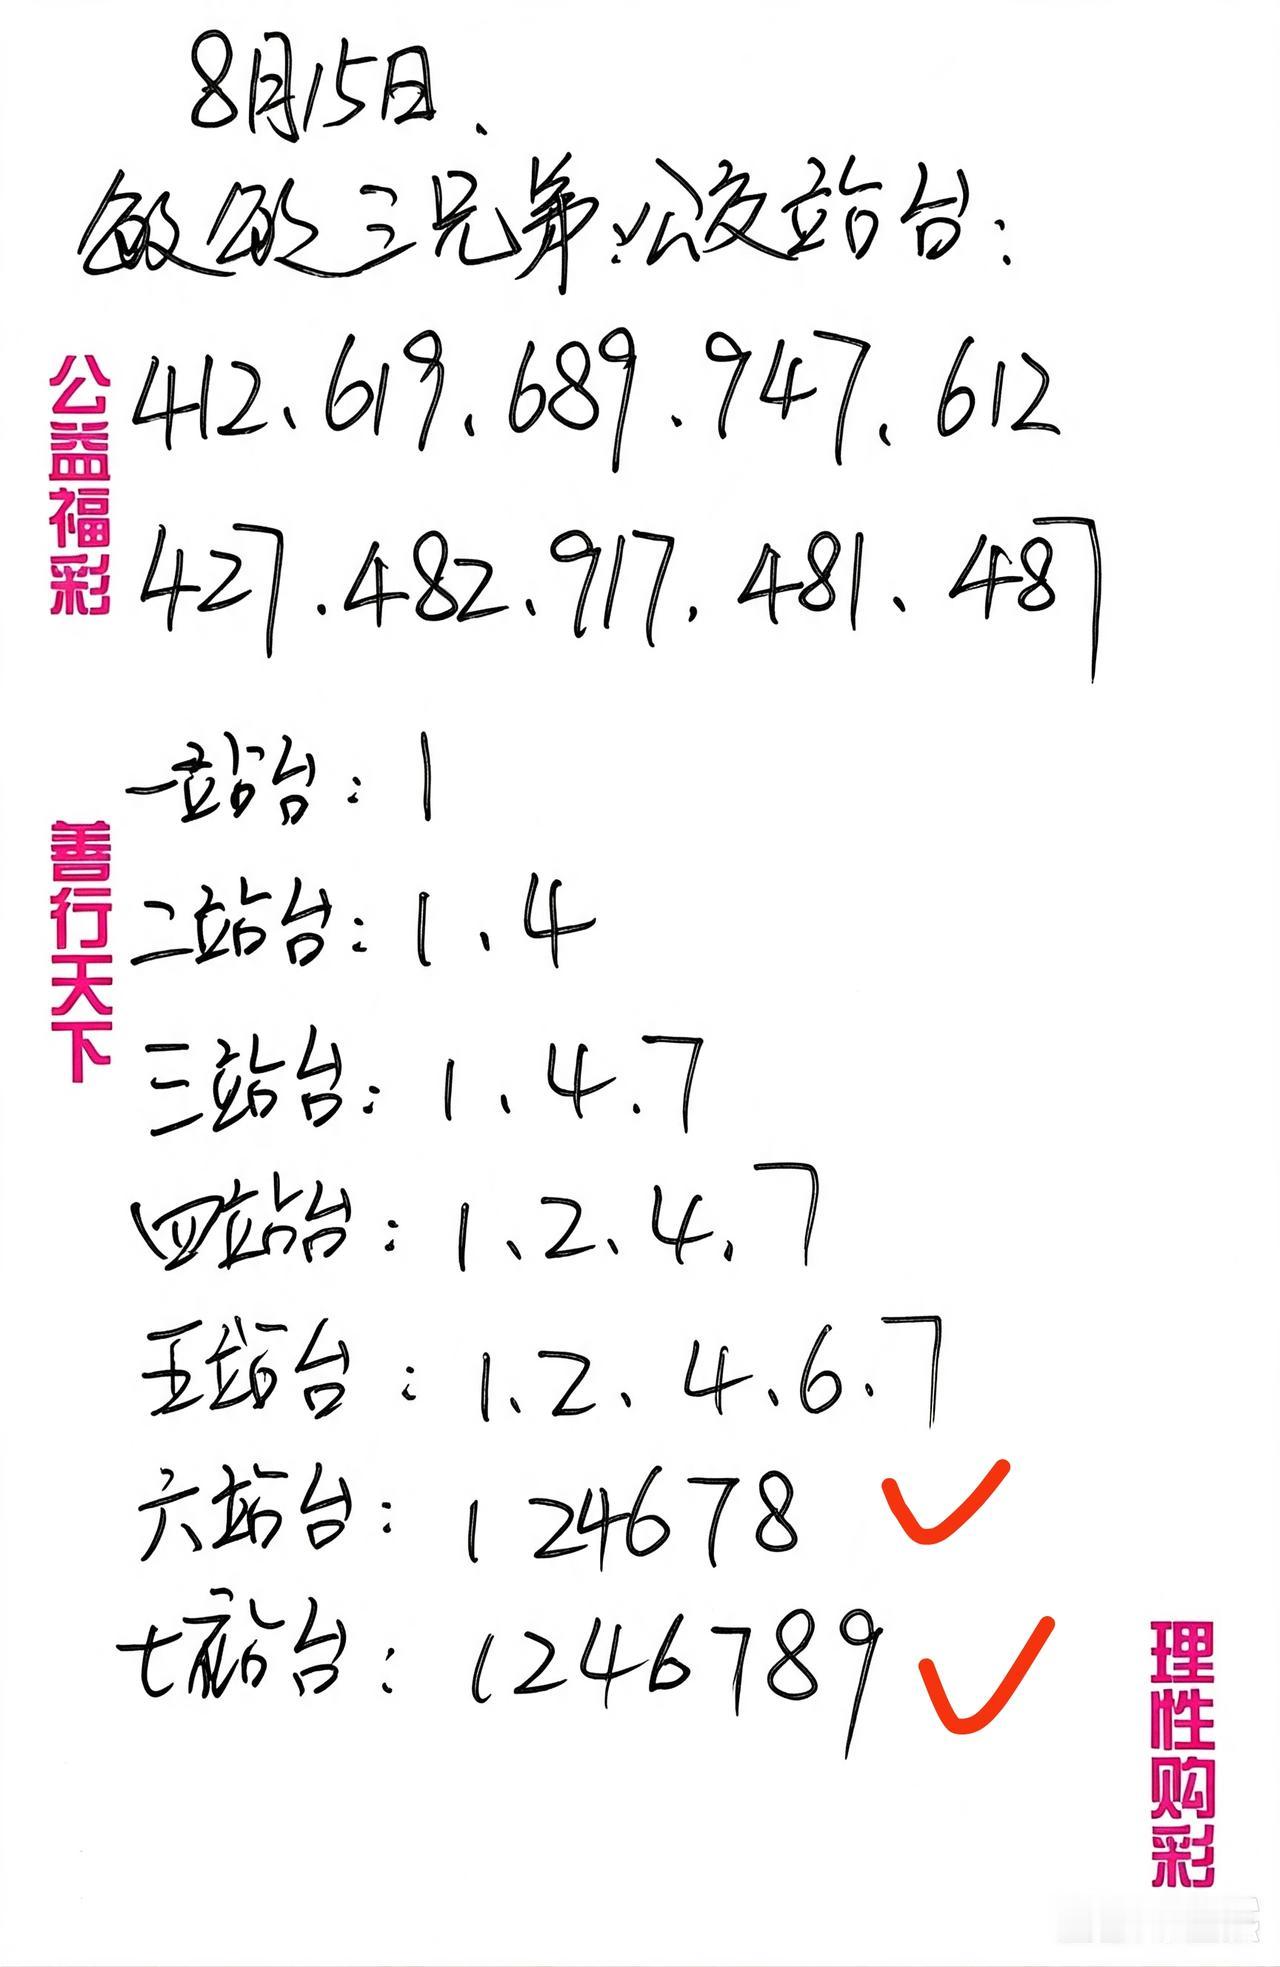 8月15日、
敏敏三兄弟:公交站台:
412、619、689、947、612
427、482、917、481、487
一站台:1
二站台:1、4
三站台:1、4、7
四站台:1、2、4、7
五站台:1、2、4、6、7
六站台:124678
七站台:1246789
公益福彩
善行天下
理性购彩